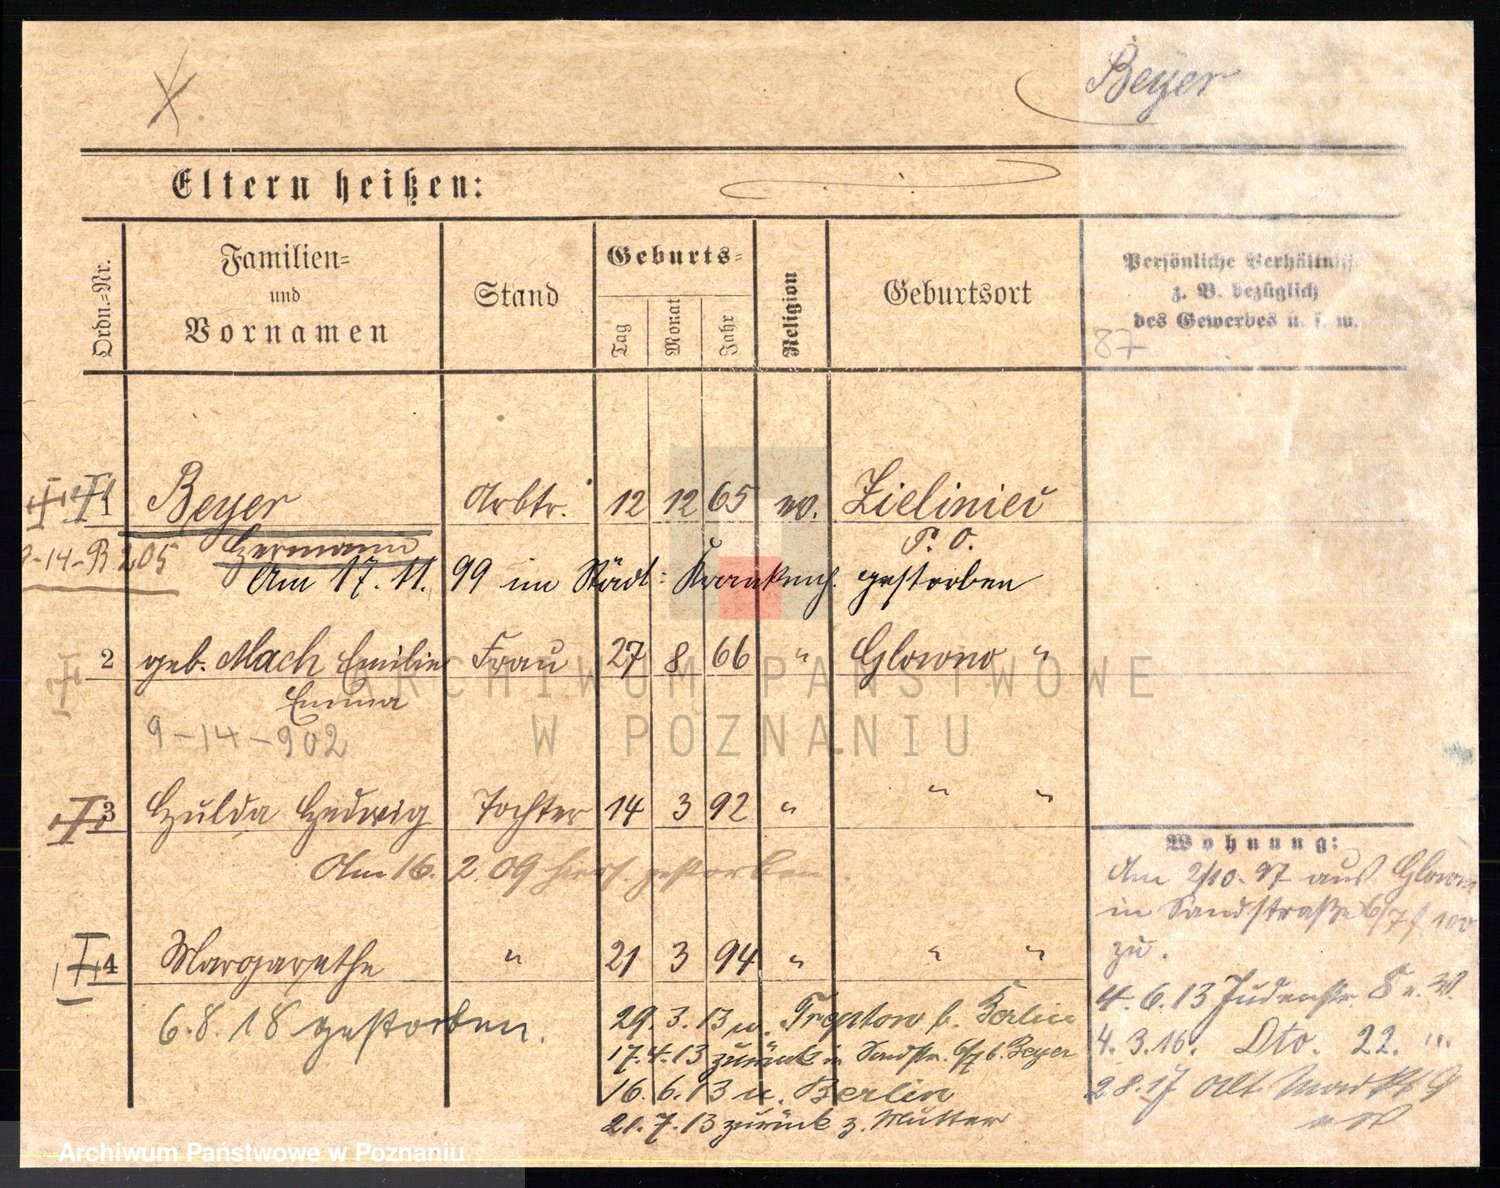 Beyer
Eltern heißen:
Ordn.-Nr.
Familien-
und
Vornamen
Stand
Geburts-
Tag
Monat
Jahr
Religion
Geburtsort
Persönliche Verhältnisse
z. B. bezüglich
des Gewerbes u. s. w.
87
1 Beyer Arbtr. 12 12 65 ev. Zieliniec
Hermann P. O.
9-14-B 205
Am 17. 11. 99 im Städt: Krankenh. gestorben
2 geb. Mach Emilie Frau 27 8 66 " Glowno "
Emma
9-14-902
3 Hulda Hedwig Tochter 14 3 92 " " "
Am 16. 2. 09 hier gestorben.
4 Margarethe " 21 3 94 " " "
6. 8. 18 gestorben.
29. 3. 13 n. Treptow b. Berlin
17. 4. 13 zurück in Sandstr. 6/7 b. Beyer
16. 6. 13 n. Berlin
21. 7. 13 zurück z. Mutter
Wohnung:
Am 2/10. 97 aus Glowno
in Sandstraße 6/7
zu.
4. 6. 13 Judenstr. 8
4. 3. 16. Dto. 22. "
2 8. 17 Alt Markt 9
ARCHIWUM PAŃSTWOWE
W POZNANIU
Archiwum Państwowe w Poznaniu